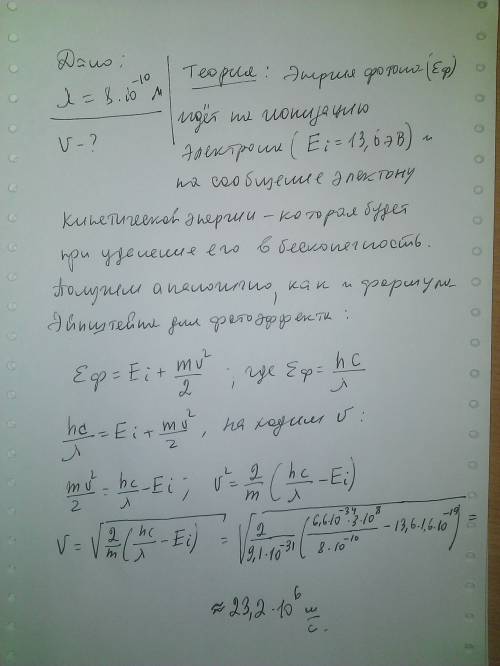 Дано:
λ = 8·10⁻¹⁰ м
V - ?
Теория: Энергия фотона (Eф)
идёт на ионизацию
электрона (Ei = 13,6 эВ) и
на сообщение электону
кинетической энергии – которая будет
при уделение его в бесконечность.
Получим аналогично, как и формула
Эйнштейна для фотоэффекта:
Eф = Ei + mv²/2 ; где Eф = hc/λ
hc/λ = Ei + mv²/2, находим v:
mv²/2 = hc/λ - Ei ; v² = 2/m (hc/λ - Ei)
V = √(2/m (hc/λ - Ei)) = √(2/9,1·10⁻³¹ (6,6·10⁻³⁴·3·10⁸/8·10⁻¹⁰ - 13,6·1,6·10⁻¹⁹)) =
≈ 23,2·10⁶ м/с.